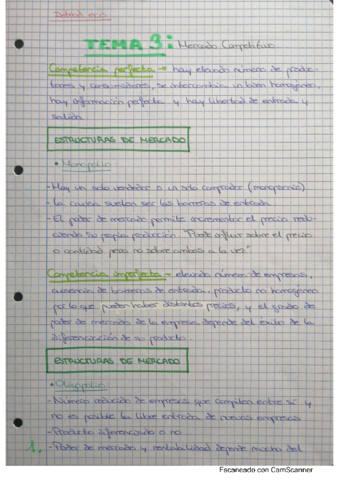 TEMA 3: Mercado Competitivo
Competencia perfecta → hay elevado número de produc-
tores y consumidores, se intercambia un bien homogéneo,
hay información perfecta y hay libertad de entrada y
salida.
ESTRUCTURAS DE MERCADO
• Monopolio
- Hay un solo vendedor o un solo comprador (monopsonio)
- La causa suelen ser las barreras de entrada
- El poder de mercado permite incrementar el precio redu-
ciendo su propia producción "Puede influir sobre el precio
o cantidad pero no sobre ambos a la vez"
Competencia imperfecta → elevado número de empresas,
ausencia de barreras de entrada, producto no homogéneo
por lo que pueden haber distintos precios, y el grado de
poder de mercado de la empresa depende del éxito de la
diferenciación de su producto.
ESTRUCTURAS DE MERCADO
• Oligopolio
- Número reducido de empresas que compiten entre sí y
no es posible la libre entrada de nuevas empresas
- Producto diferenciado o no
- Poder de mercado y rentabilidad depende mucho del
1.
Escaneado con CamScanner